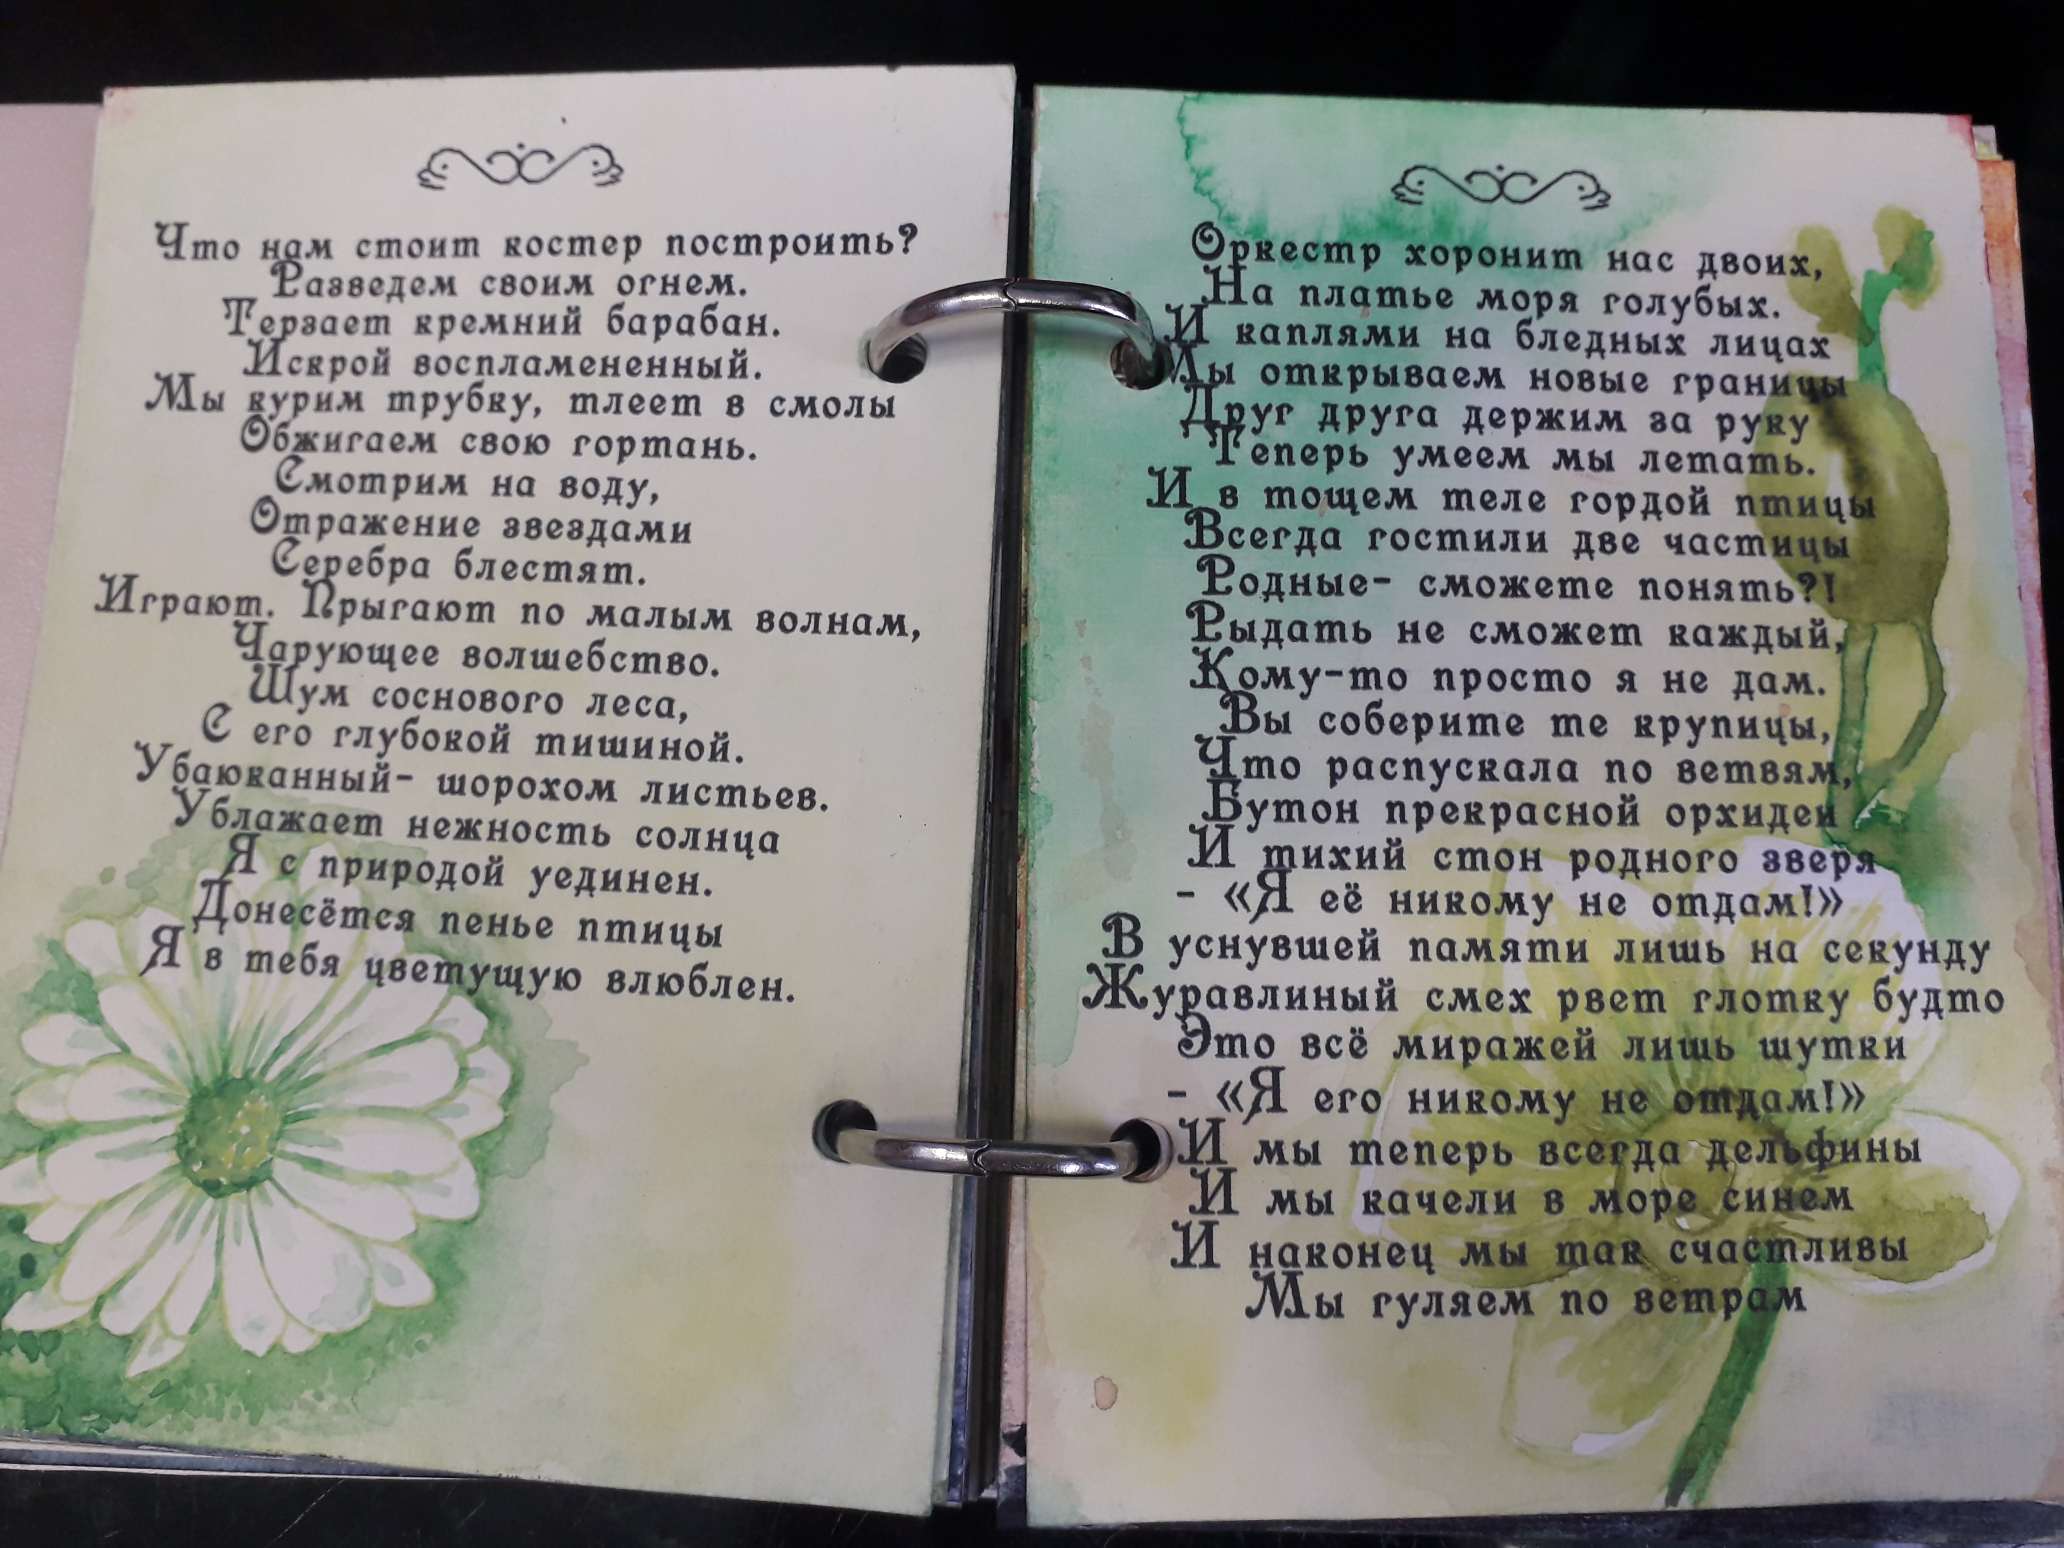 Что нам стоит костер построить?
Разведем своим огнем.
Терзает кремний барабан.
Искрой воспламененный.
Мы курим трубку, тлеет в смолы
Обжигаем свою гортань.
Смотрим на воду,
Отражение звездами
Серебра блестят.
Играют. Прыгают по малым волнам,
Чарующее волшебство.
Шум соснового леса,
С его глубокой тишиной.
Убаюканный- шорохом листьев.
Ублажает нежность солнца
Я с природой уединен.
Донесётся пенье птицы
Я в тебя цветущую влюблен.
Оркестр хоронит нас двоих,
На платье моря голубых.
И каплями на бледных лицах
Мы открываем новые границы
Друг друга держим за руку
Теперь умеем мы летать.
И в тощем теле гордой птицы
Всегда гостили две частицы
Родные- сможете понять?!
Рыдать не сможет каждый,
Кому-то просто я не дам.
Вы соберите те крупицы,
Что распускала по ветвям,
Бутон прекрасной орхидеи
И тихий стон родного зверя
- «Я её никому не отдам!»
В уснувшей памяти лишь на секунду
Журавлиный смех рвет глотку будто
Это всё миражей лишь шутки
- «Я его никому не отдам!»
И мы теперь всегда дельфины
И мы качели в море синем
И наконец мы так счастливы
Мы гуляем по ветрам